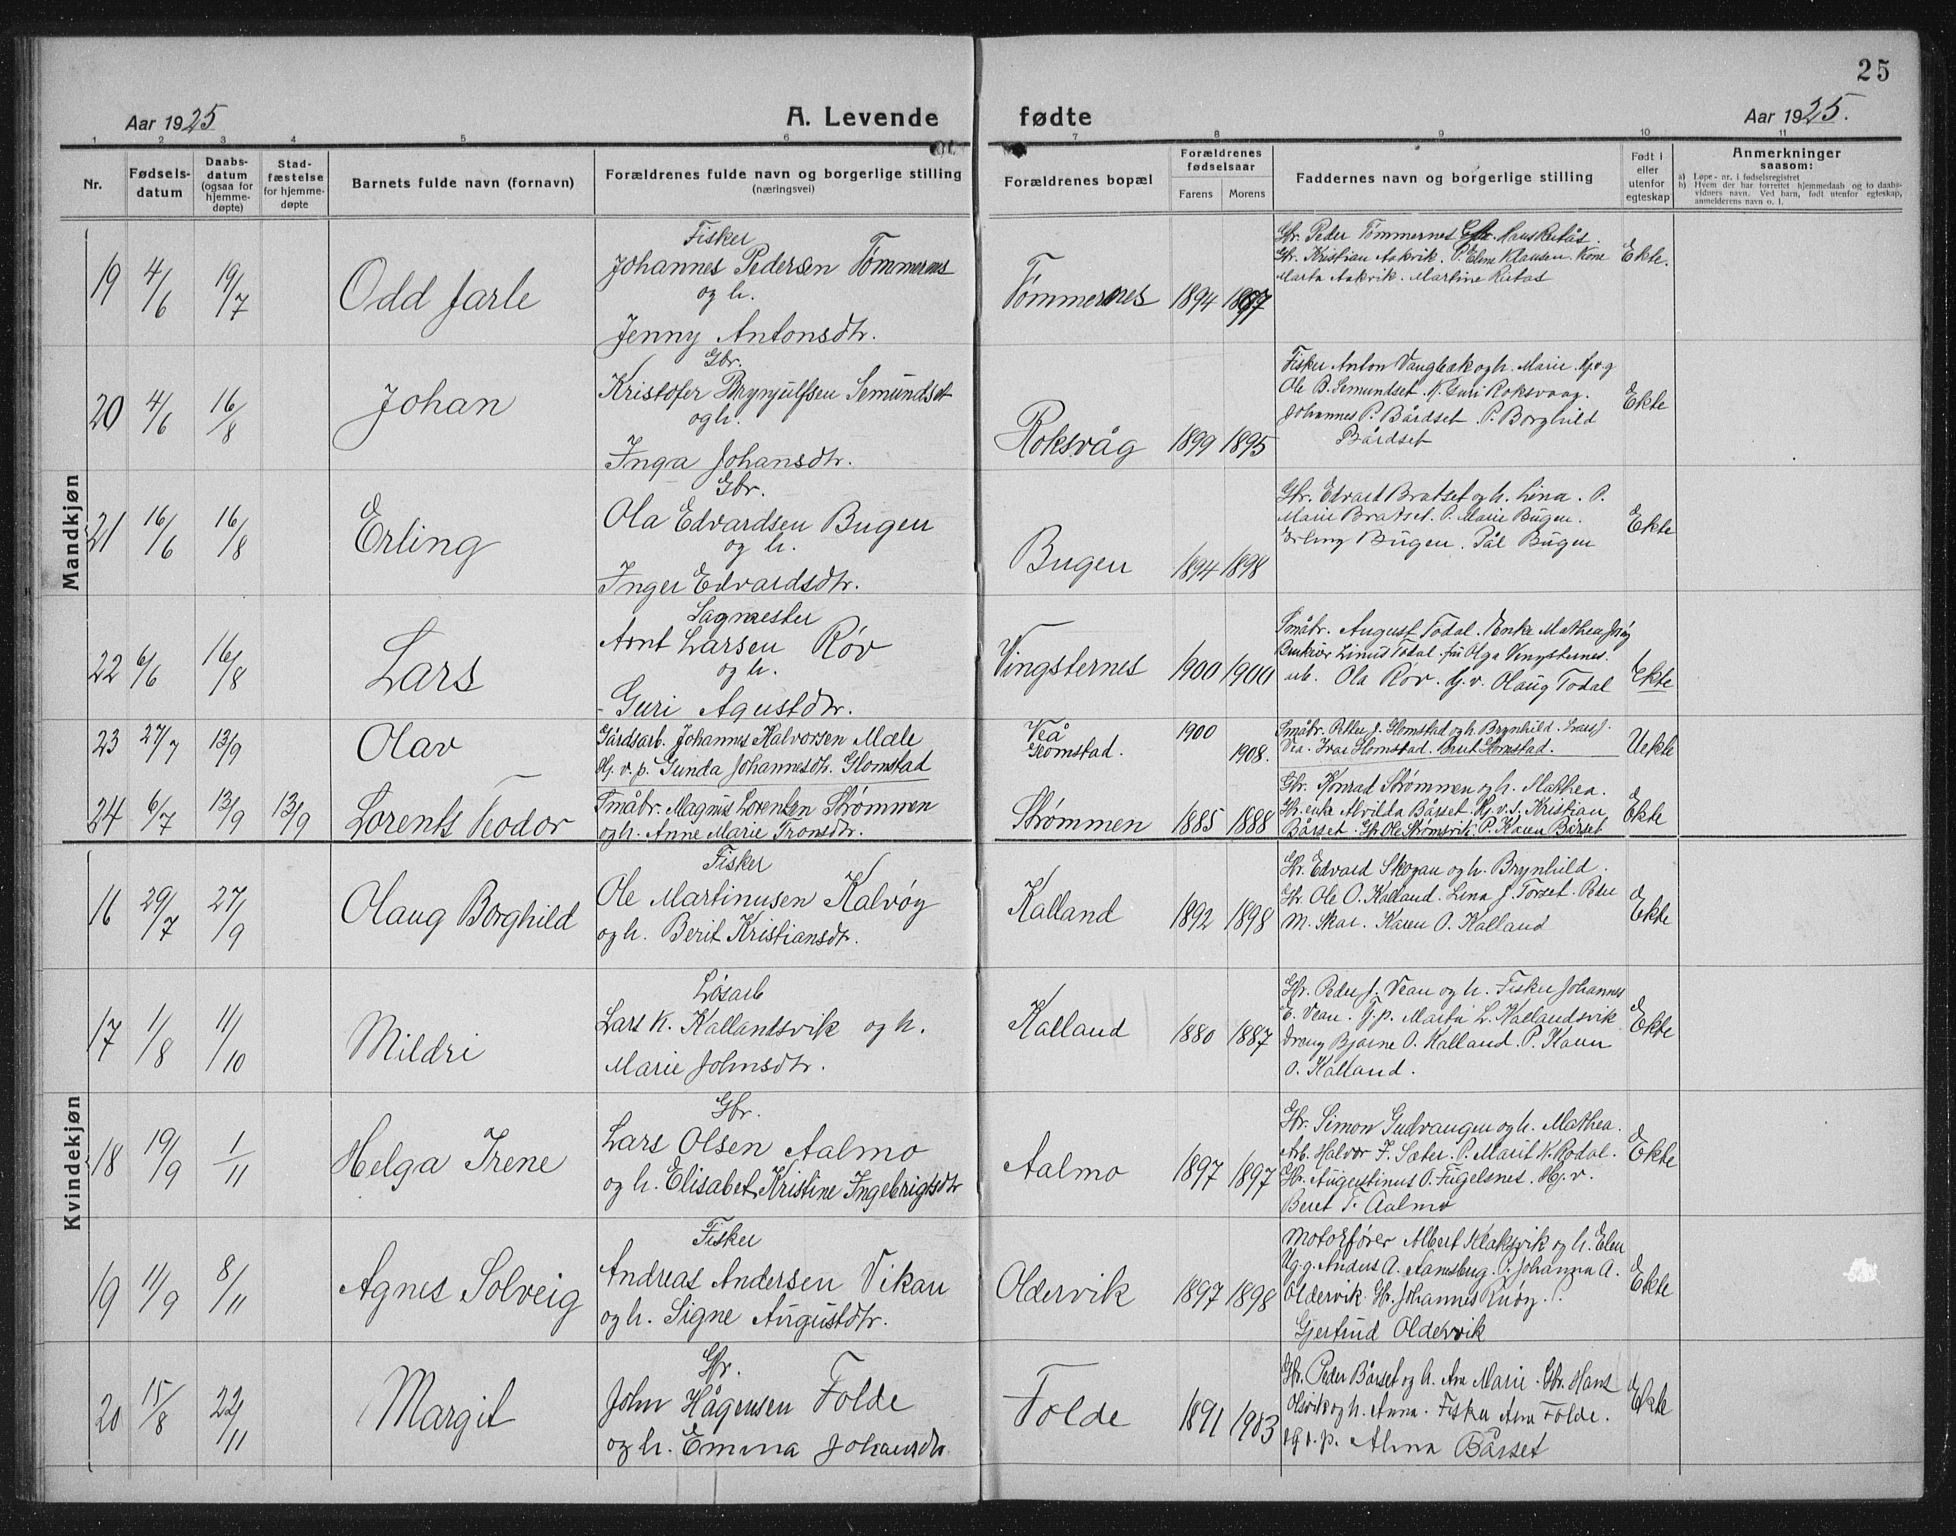 25
Aar 1925
A. Levende
fødte
Aar 1925.
1 2 3 4 5 6 7 8 9 10 11
Nr.
Fødsels-
datum
Daabs-
datum
(ogsaa for
hjemme-
døpte)
Stad-
fæstelse
for hjemme-
døpte
Barnets fulde navn (fornavn)
Forældrenes fulde navn og borgerlige stilling
(næringsvei)
Forældrenes bopæl
Forældrenes
fødselsaar
Farens Morens
Faddernes navn og borgerlige stilling
Født i
eller
utenfor
egteskap
Anmerkninger
saasom:
a) Løpe-nr. i fødselsregistret
b) Hvem der har forrettet hjemmedaab og to daabs-
vidners navn. Ved barn, født utenfor egteskap,
anmelderens navn o. l.
Mandkjøn
19 4/6 19/7 Odd Jarle
Fisker
Johannes Pedersen Tømmernes
og h.
Jenny Antonsdtr.
Tømmernes 1894 1897
Gbr. Peder Tømmernes Gbr. Hans
Gbr. Kristian Aakvik. P. Eline Klausen. Kone
Marta Aakvik. Martine
Ekte.
20 4/6 16/8 Johan
Gbr.
Kristofer Brynjulfsen Semundset
og h.
Inga Johansdtr.
Roksvåg 1899 1895
Fisker Anton Vaagleak og h. Marie. Hj. v. g
Ole B. Semundset. K. Guri Roksvaag.
Johannes P. Bårdset. P. Borghild
Bårdset
Ekte
21 16/6 16/8 Erling
Gbr.
Ola Edvardsen Bugen
og h.
Inger Edvardsdtr.
Bugen 1894 1898
Gbr. Edvard Bratset og h. Lina. P.
Marie Bratset. P. Marie Bugen.
Erling Bugen. Pål Bugen
Ekte
22 6/6 16/8 Lars
Sagmester
Arnt Larsen Røv
og h.
Guri Agustdtr.
Vingsternes 1900 1900
Småbr. August Todal. Enke Mathea
Linus Todal. frk Olga Vingsternes.
arb. Ola Røv. Hj. v. Olaug Todal
Ekte
23 27/7 13/9 Olav
Gårdsarb. Johannes Halvorsen Mæle
Hj. v. p. Gunda Johannesdtr. Glomstad
Veå 1900
Glomstad. 1908.
Småbr. Petter J. Glomstad og h. Brynhild. Lars J.
Vea. Ivar Glomstad. Berit Glomstad.
Uekte
24 6/7 13/9 13/9 Lorents Teodor
Småbr. Magnus Lorentsen Strømmen
og h. Anne Marie Tronsdtr.
Strømmen 1885 1888
Gbr. Konrad Strømmen og h. Mathea.
Gbr. enke Alvilda Bårset. Hj. v. S. Kristian
Bårset. Gbr. Ole Strømsvik. P. Karen Bårset
Ekte
Kvindekjøn
16 29/7 27/9 Olaug Borghild
Fisker
Ole Martinusen Kalvøy
og h. Berit Kristiansdtr.
Kalland 1892 1898
Gbr. Edvard Skogan og h. Brynhild.
Gbr. Ole O. Kalland. Lina J. Torset. Peder
M. Skar. Karen O. Kalland
Ekte
17 1/8 11/10 Mildri
Løsarb
Lars K. Kallandsvik og h.
Marie Johnsdtr.
Kalland 1880 1887
Gbr. Peder J. Vean og h. Fisker Johannes
E. Vean. Tj. p. Marta L. Kallandsvik
dreng Bjarne O. Kalland. P. Karen
O. Kalland.
Ekte
18 19/9 1/11 Helga Irene
Gbr.
Lars Olsen Aalmo
og h. Elisabet Kristine Ingebrigtsdtr
Aalmo 1897 1897
Gbr. Simon Gulvangen og h. Mathea.
Arb. Halvor F. Sæter. P. Marit K. Rodal.
Gbr. Augustinus O. Fugelsnes. Hj. v.
Beret T. Aalmo
Ekte
19 11/9 8/11 Agnes Solveig
Fisker
Andreas Andersen Vikan
og h. Signe Augustdtr.
Oldervik 1897 1898
Motorfører Albert Klaksvik og h. Elen
Ug. g. Anders A. P. Johanna A.
Oldervik. Gbr. Johannes
Gjertrud Oldervik
Ekte
20 15/8 22/11 Margit
Gbr.
John Hågensen Folde
og h. Emma Johansdtr.
Folde 1891 1903
Gbr. Peder Bårset og h. Ane Marie. Gbr. Hans
Olsvik og h. Anna. Fisker Arne Folde.
Alma Bårset
Ekte